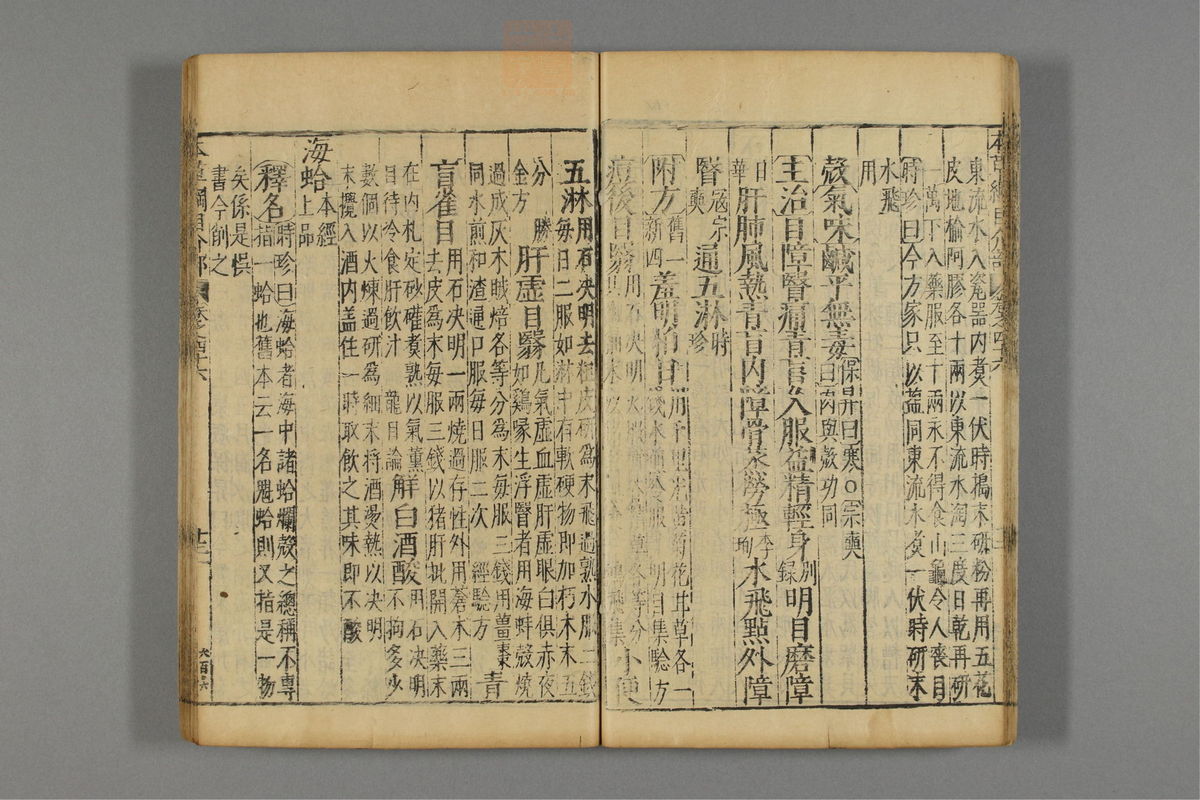 東流水入瓷器內煮一伏時擣末研粉再用五花
皮地榆阿膠各十兩以東流水淘三度日乾再研
一萬下入藥服至十兩永不得食山龜令人喪目
時珍曰今方家只以鹽同東流水煮一伏時研末
水飛
用
殼氣味鹹平無毒保昇曰寒○宗奭
曰肉與殼功同
主治目障瞖痛青盲久服益精輕身別
錄明目磨障
日
華肝肺風熱青盲內障骨蒸勞極李
珣水飛點外障
瞖寇宗
奭通五淋時
珍
附方舊一
新四羞明用千里光甘菊花甘草各一
錢水煎服 明目集驗方
痘後目瞖小便
五淋用石決明去粗皮研為末飛過熟水服二錢
每日二服如淋中有軟硬物即加朽木末五
分 勝
金方肝虛目瞖凡氣虛血虛肝虛眼白俱赤夜
如雞啄生浮瞖者用海蚌殼燒
過成灰木賊焙各等分為末每服三錢用薑棗
同水煎和渣通口服每日服二次 經驗方青
盲雀目用石決明一兩燒過存性外用蒼朮三兩
去皮為末每服三錢以猪肝批開入藥末
在內札定砂礶煮熟以氣薰
目待冷食肝飲汁 龍目論解白酒酸用石決明
不拘多少
數個以火煉過研為細末將酒燙熱以決明
末攪入酒內蓋住一時取飲之其味即不酸
海蛤本經
上品
釋名時珍曰海蛤者海中諸蛤爛殼之總稱不專
指一蛤也舊本云一名魁蛤則又指是一物
矣係是悮
書今削之